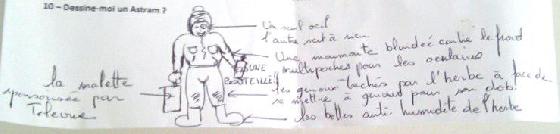 10 - Dessine-moi un Astram ?
Un seul oeil
l'autre sert à rien
Une moumoute blindée contre le froid
multipoches pour les oculaires
UNE
BOUTEILLE
les genoux tachés par l'herbe à force de
se mettre à genoux pour son dob !
les bottes anti humidité de l'herbe
la malette
sponsorisée par